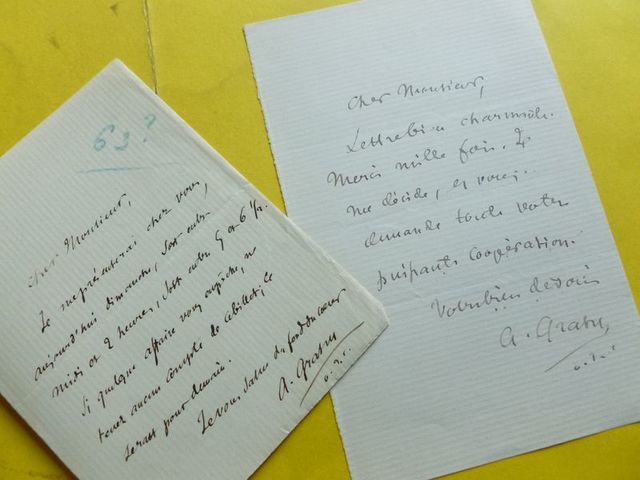 63?
Cher Monsieur,
Je me présenterai chez vous,
aujourd'hui dimanche, soit entre
midi et 2 heures, soit entre 5 et 6 h.
Si quelque affaire vous empêche, ne
tenez aucun compte de ce billet; ce
serait pour demain.
Je vous salue du fond du cœur
A. Gratry
Cher Monsieur,
Lettre bien charmante.
Merci mille fois. Je
me décide, et vous
demande toute votre
puissante coopération.
Votre bien dévoué
A. Gratry